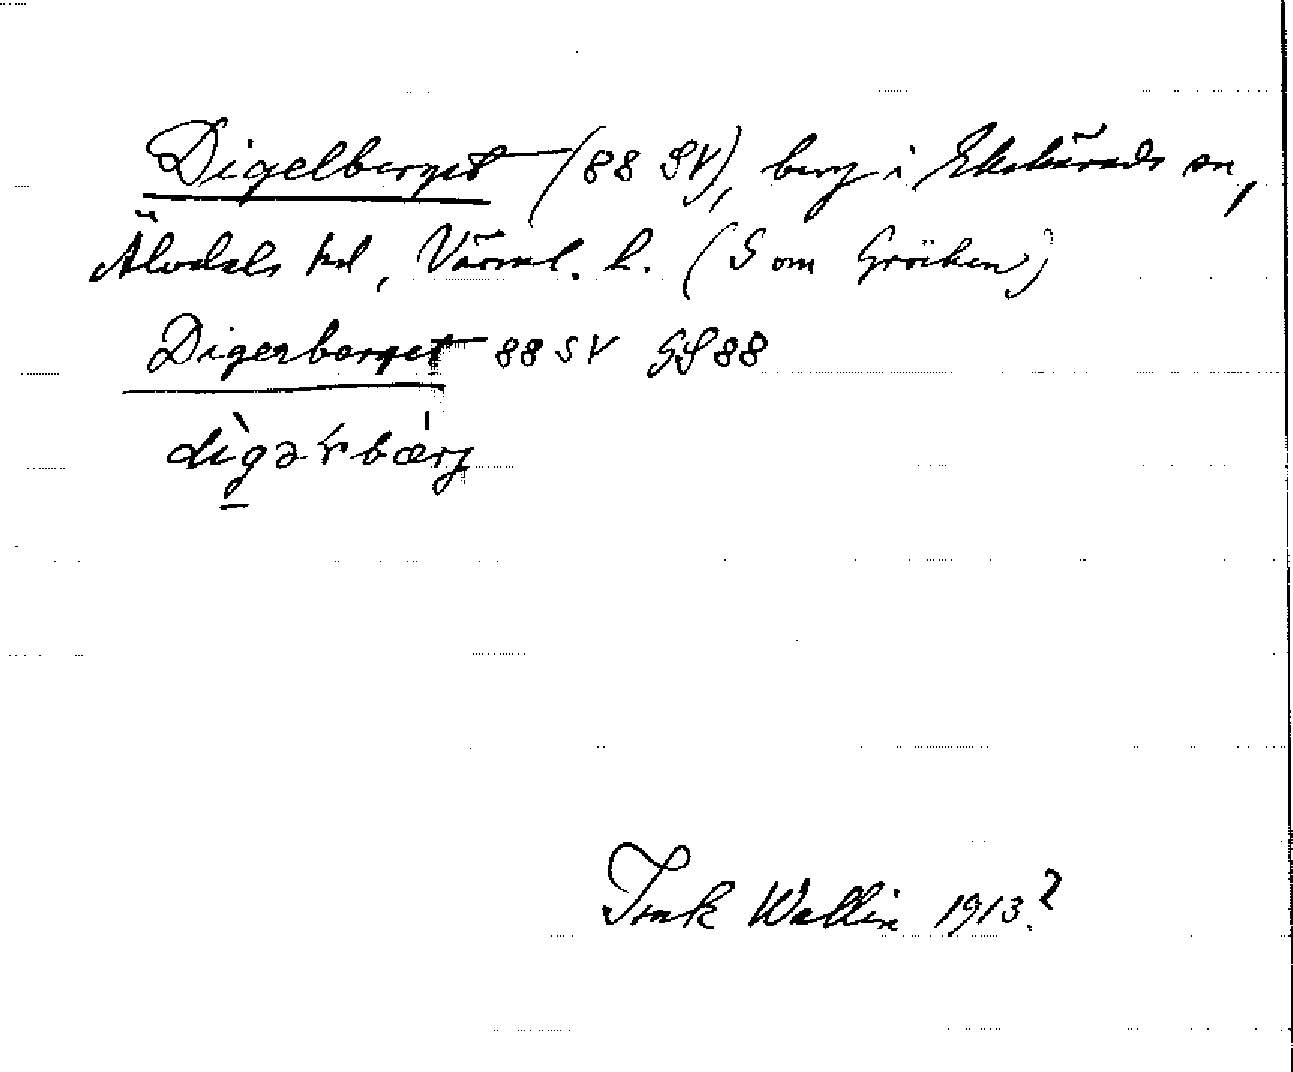 Digelberget (88 SV), berg i Ekshärads sn,
Älvdals hd, Värml. l. (S om Gräiken)
Digerberget 88 SV GS 88
dìgərbærj
Isak Wallin 1913?